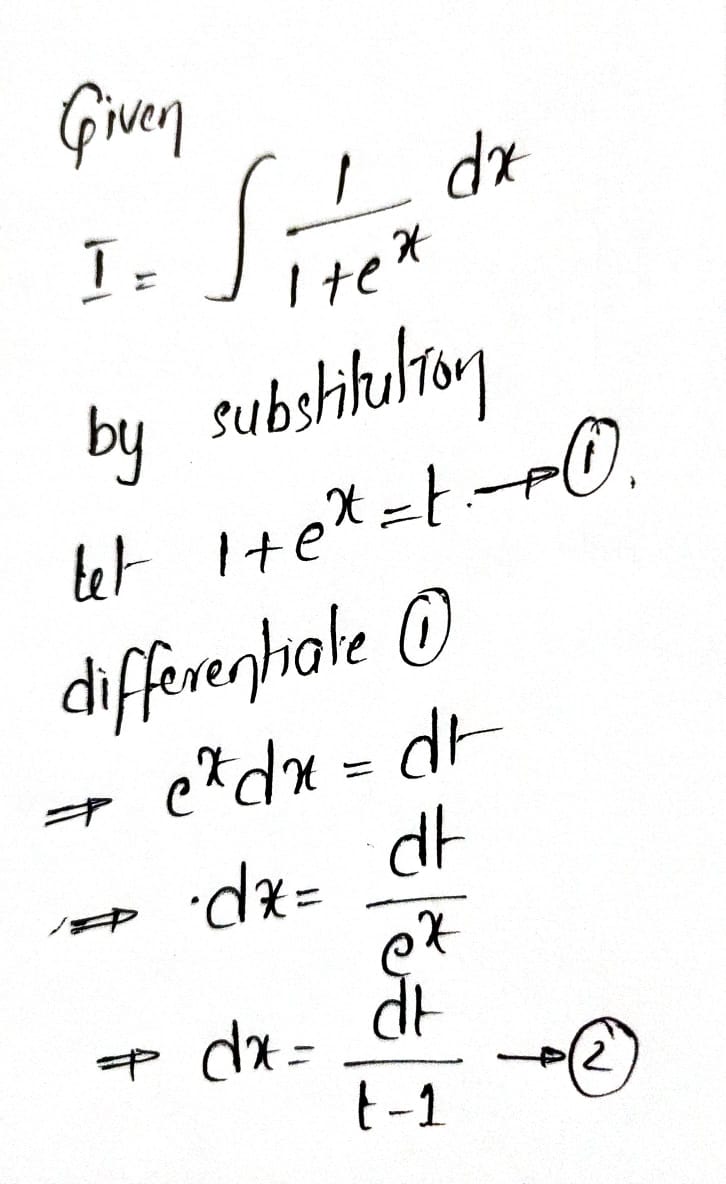 Given
I = ∫ 1/(1+e^x) dx
by substitution
let 1+e^x = t. → ①.
differentiate ①
⇒ e^x dx = dt
⇒ dx = dt/e^x
⇒ dx = dt/(t-1) → ②